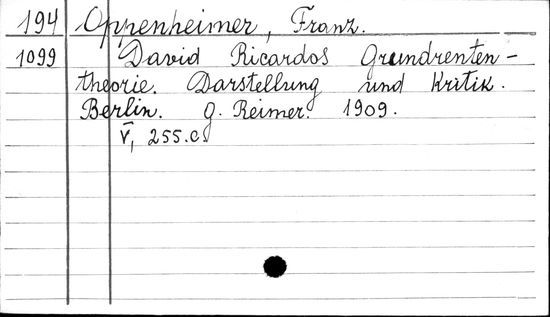 194 Oppenheimer, Franz.
1099 David Ricardos Grundrenten-
theorie. Darstellung und Kritik.
Berlin. G. Reimer. 1909.
V, 255.c.